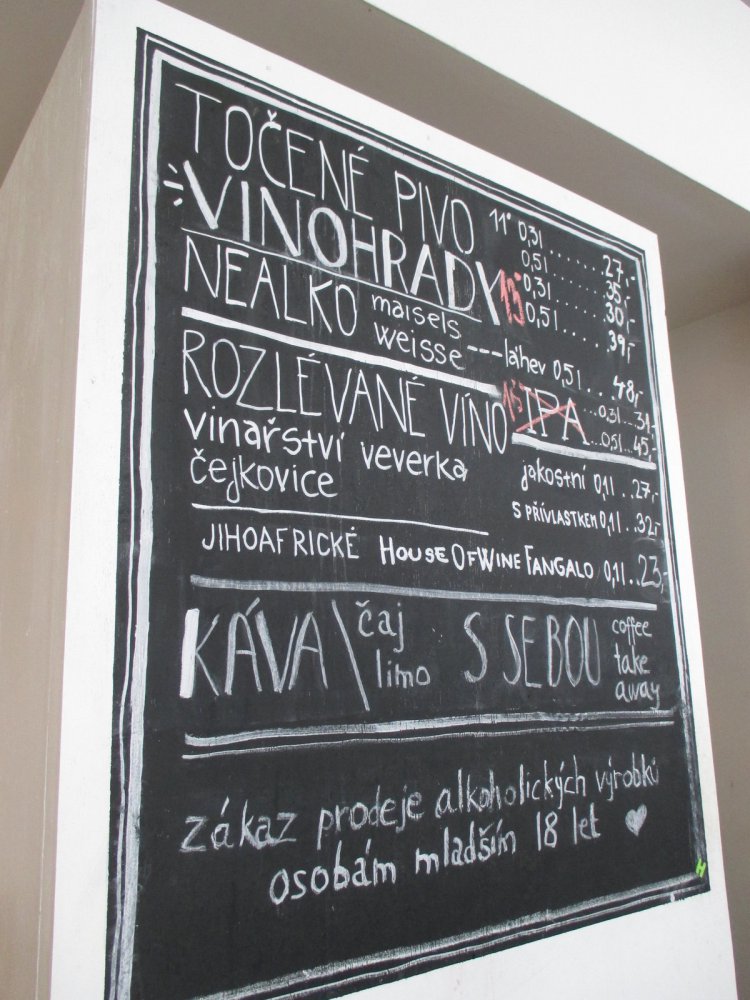 TOČENÉ PIVO 11° 0,3l ......27,-
VINOHRADY 0,5l ......35,-
13° 0,3l ......30,-
0,5l .....39,-
NEALKO maisels weisse --- láhev 0,5l ...48,-
IPA ...0,3l..31,-
...0,5l..45,-
ROZLÉVANÉ VÍNO
vinařství veverka
čejkovice
jakostní 0,1l ..27,-
S PŘÍVLASTKEM 0,1l ..32,-
JIHOAFRICKÉ HOUSE OF WINE FANGALO 0,1l ..23,-
KÁVA \ čaj
limo
S SEBOU coffee
take
away
zákaz prodeje alkoholických výrobků
osobám mladším 18 let
H